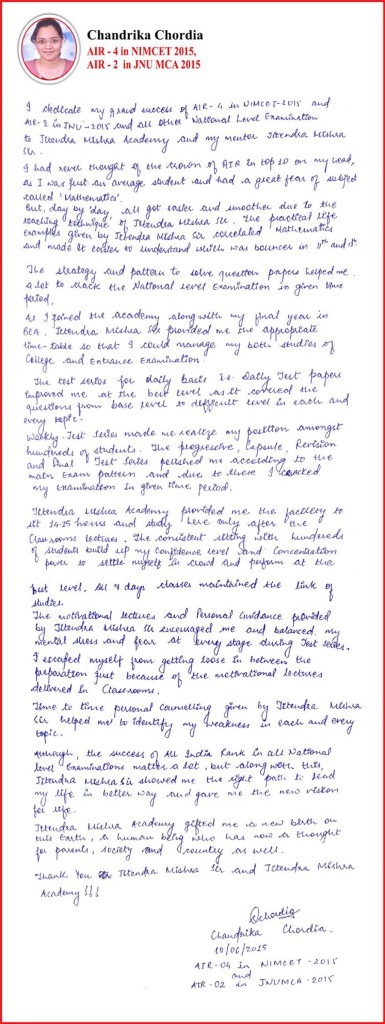 Chandrika Chordia
AIR - 4 in NIMCET 2015,
AIR - 2 in JNU MCA 2015
I dedicate my grand success of AIR-4 in NIMCET-2015 and
AIR-2 in JNU-2015 and all other National Level Examination
to Jitendra Mishra Academy and my mentor Jitendra Mishra
Sir.
I had never thought of the crown of AIR in top 10 on my head,
as I was just an average student and had a great fear of subject
called 'Mathematics'.
But, day by day, all got easier and smoother due to the
teaching technique of Jitendra Mishra Sir. The practical life
examples given by Jitendra Mishra Sir correlated Mathematics
and made it easier to understand which was bouncer in 11th and 12th.
The strategy and pattern to solve question papers helped me
a lot to crack the National Level Examination in given time
period.
As I joined the academy along with my final year in
BCA. Jitendra Mishra Sir provided me the appropriate
time-table so that I could manage my both studies of
College and Entrance Examination.
The test series for daily basis i.e. Daily Test papers
improved me at the best level as it covered the
questions from base level to difficult level in each and
every topic.
Weekly Test Series made me realize my position amongst
hundreds of students. The progressive, Capsule, Revision
and Final Test Series polished me according to the
main Exam pattern and due to these I cracked
my examination in given time period.
Jitendra Mishra Academy provided me the facility to
sit 14-15 hours and study here only after the
Classrooms lectures. The consistent sitting with hundreds
of students build up my confidence level and Concentration
power to settle myself in crowd and perform at the
best level. All 7 days classes maintained the link of
studies.
The motivational lectures and Personal Guidance provided
by Jitendra Mishra Sir encouraged me and balanced my
mental stress and fear at every stage during Test Series.
I escaped myself from getting loose in between the
preparation just because of the motivational lectures
delivered in Classrooms.
Time to time personal counselling given by Jitendra Mishra
Sir helped me to identify my weakness in each and every
topic.
Although, the success of All India Rank in all National
level Examinations matter a lot, but along with this,
Jitendra Mishra Sir showed me the right path to lead
my life in better way and gave me the new vision
for life.
Jitendra Mishra Academy gifted me a new birth on
this Earth, a human being who has now a thought
for parents, society and country as well.
Thank You Jitendra Mishra Sir and Jitendra Mishra
Academy!!!
Chordia
Chandrika Chordia.
10/06/2015
AIR-04 in NIMCET-2015
and
AIR-02 in JNUMCA-2015